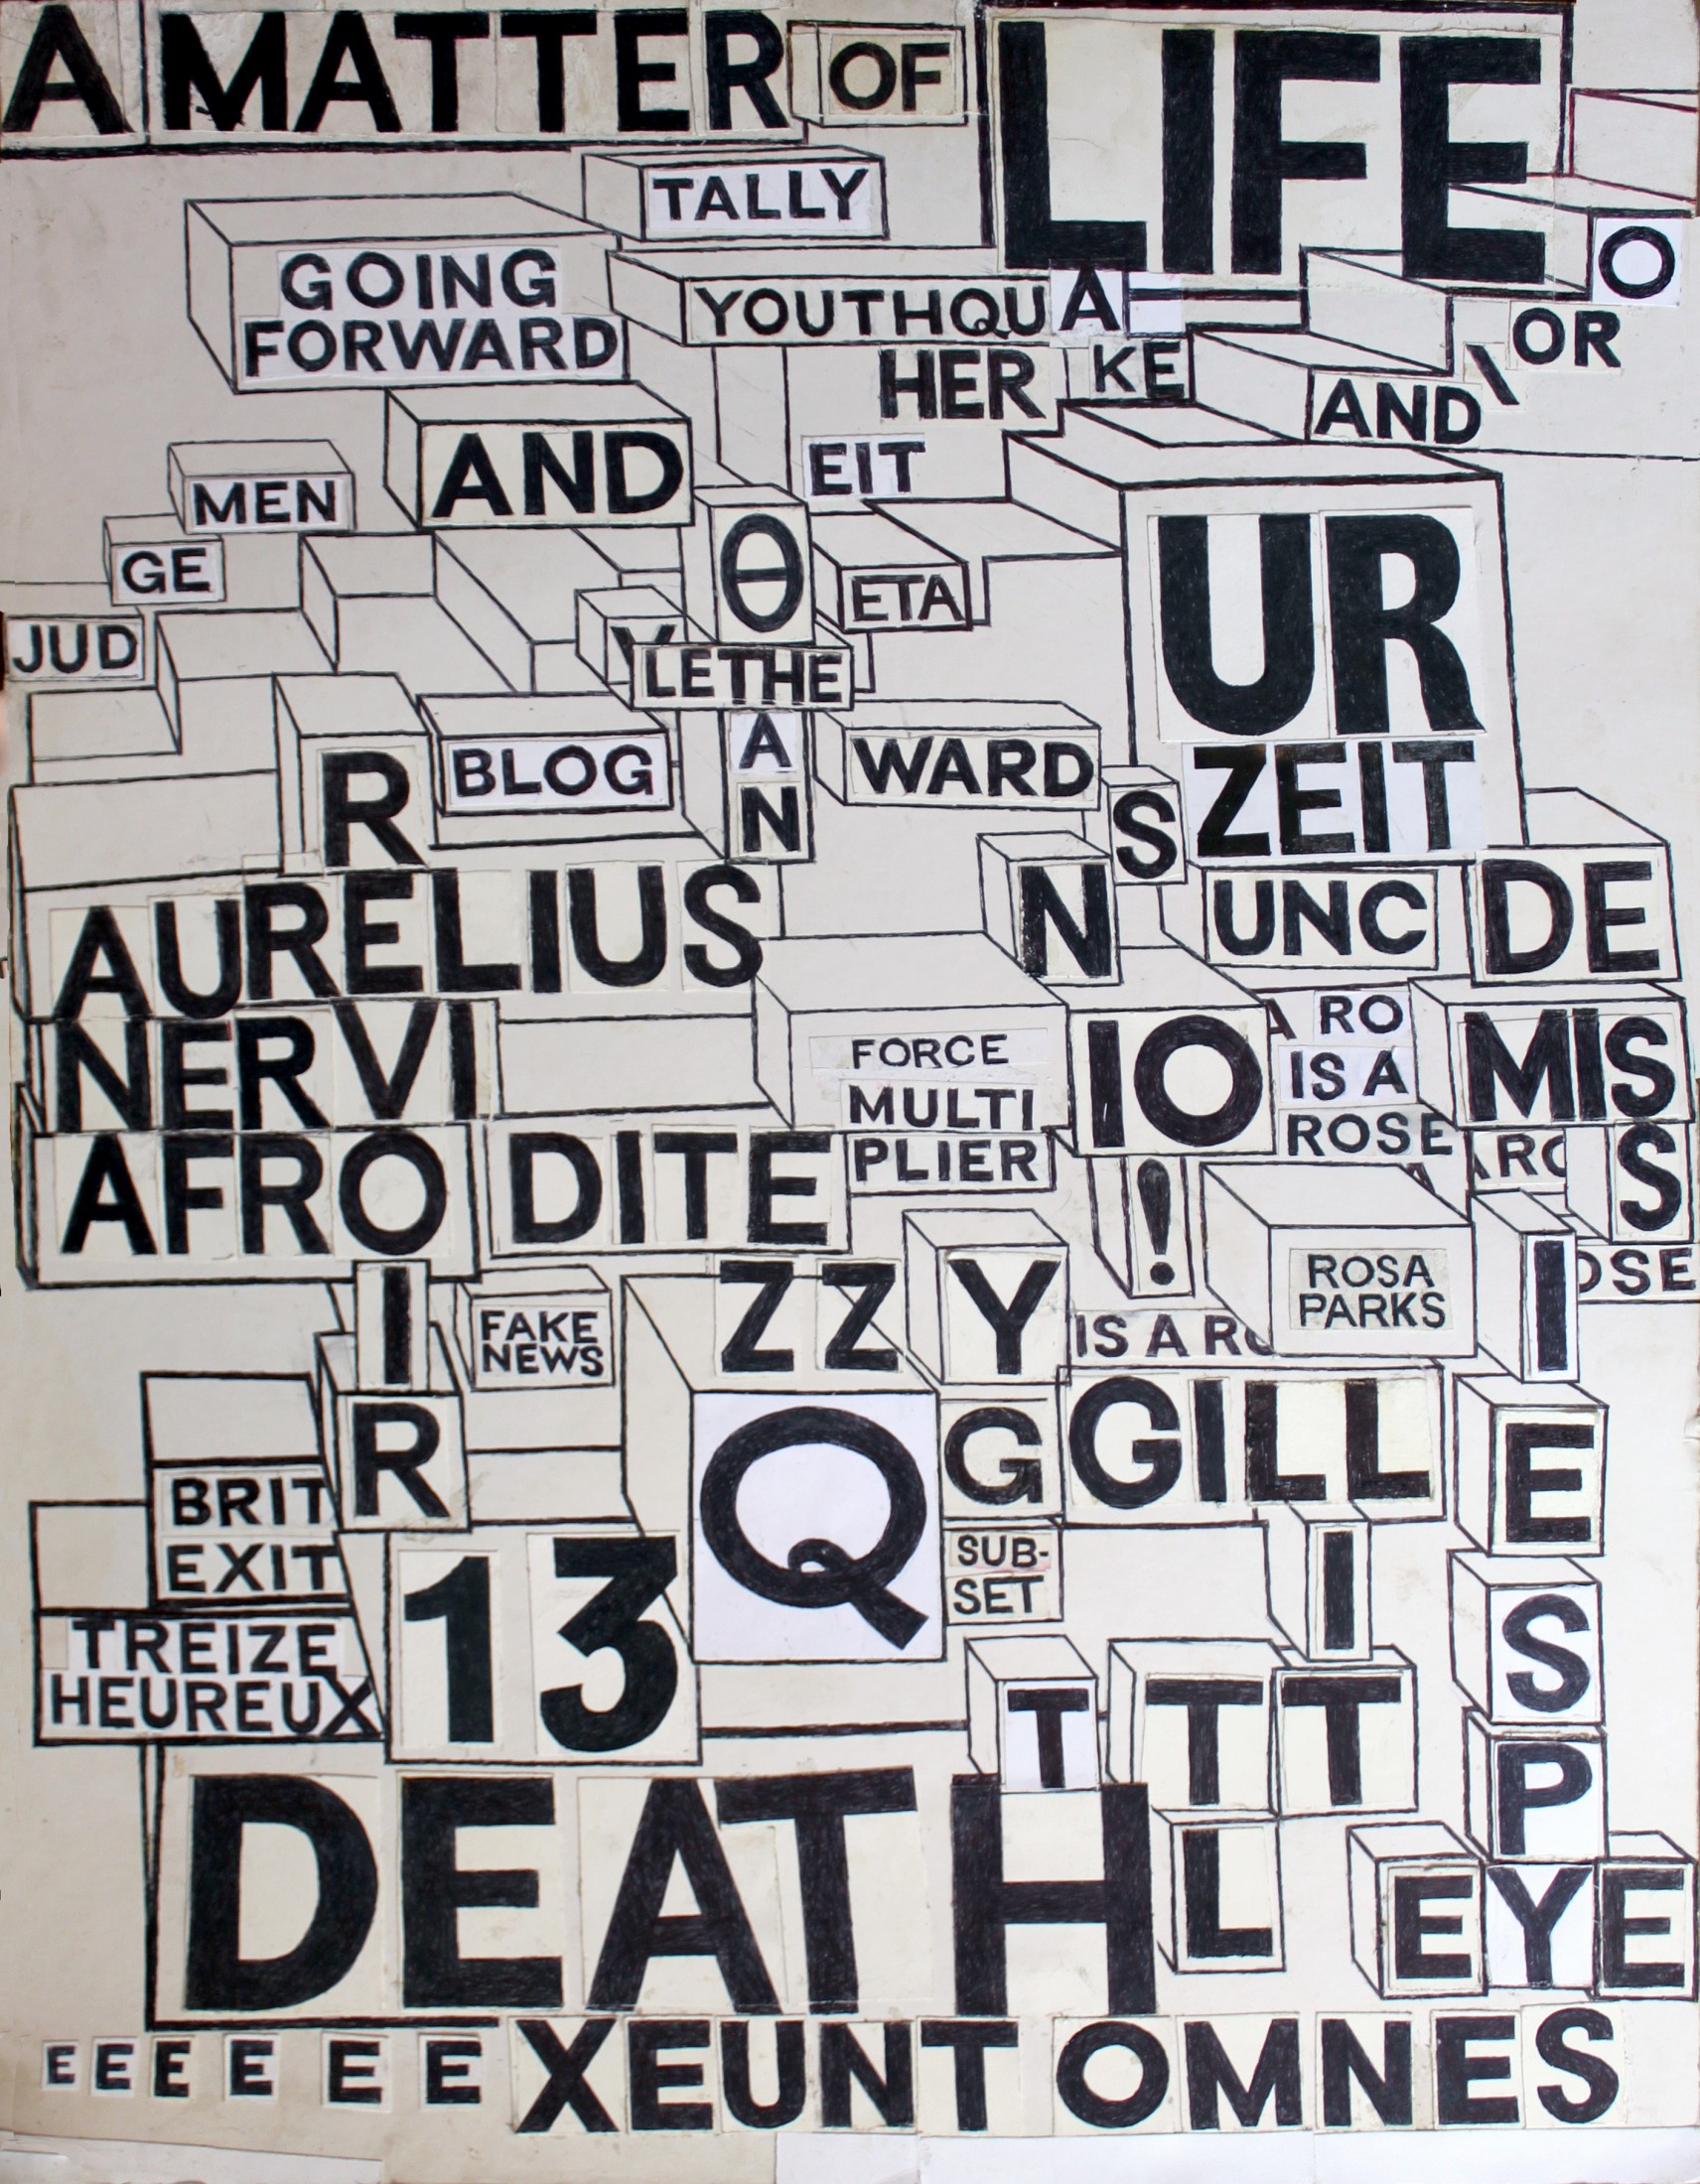 A MATTER OF LIFE
TALLY
O
GOING
FORWARD
YOUTHQUA
KE
\OR
HER
AND
AND
EIT
MEN
GE
JUD
Θ
ETA
UR
Y
LETHE
A
N
R
BLOG
WARD
S
ZEIT
AURELIUS
N
UNC
DE
NERVI
FORCE
MULTI
PLIER
IO
!
A RO
IS A
ROSE
MIS
S
AFRO
DITE
ARO
OSE
I
FAKE
NEWS
ZZ
Y
ROSA
PARKS
IS A RO
I
R
Q
G
GILL
E
BRIT
EXIT
13
SUB-
SET
I
S
TREIZE
HEUREUX
T
T
T
P
DEATH
L
EYE
E E E E E E XEUNT OMNES